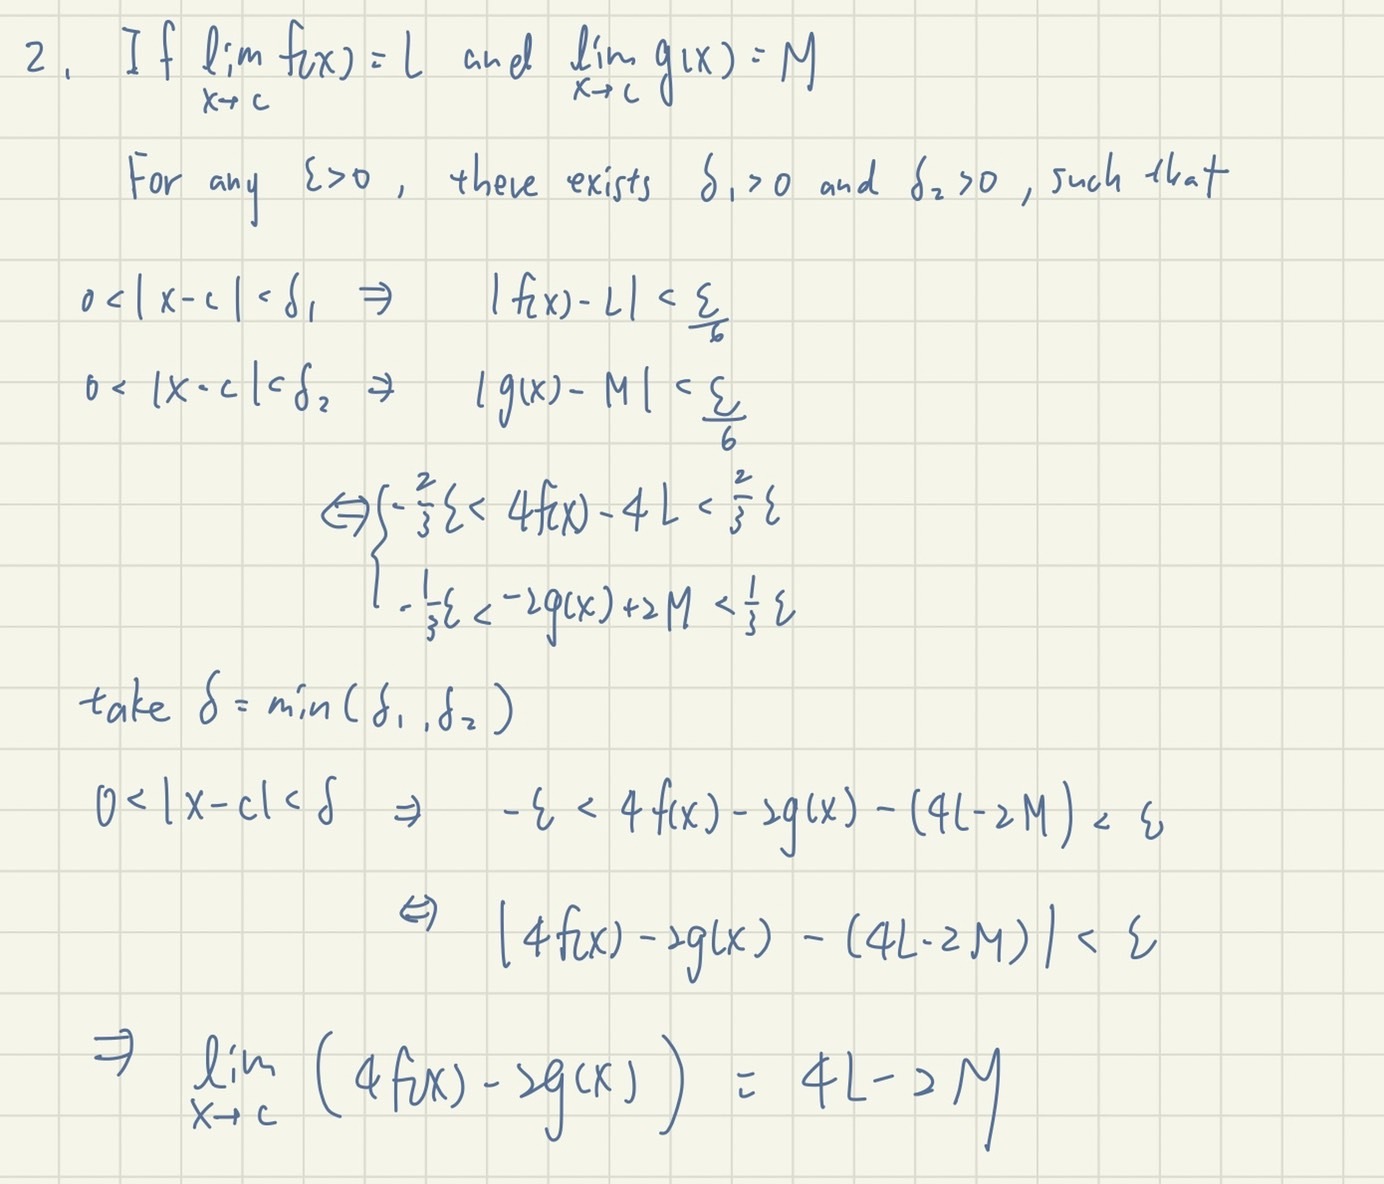 2. If lim f(x) = L and lim g(x) = M
x→c x→c
For any ε>0, there exists δ₁>0 and δ₂>0, such that
0<|x-c|<δ₁ ⇒ |f(x)-L| < ε/6
0<|x-c|<δ₂ ⇒ |g(x)-M| < ε/6
⇔ { -2/3 ε < 4f(x)-4L < 2/3 ε
-1/3 ε < -2g(x)+2M < 1/3 ε
take δ = min(δ₁,δ₂)
0<|x-c|<δ ⇒ -ε < 4f(x)-2g(x)-(4L-2M) < ε
⇔ |4f(x)-2g(x)-(4L-2M)| < ε
⇒ lim (4f(x)-2g(x)) = 4L-2M
x→c